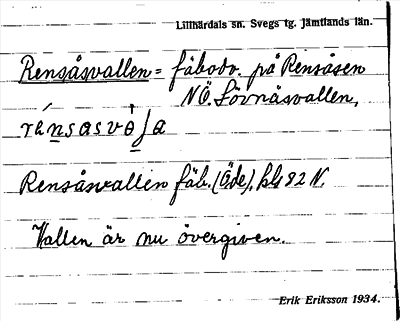 Lillhärdals sn. Svegs tg. Jämtlands län.
Rensåsvallen = fäbodv. på Rensåsen
NÖ. Lövnäsvallen,
Rensåsvallen fäb. (Öde), bl. 82 N.
Vallen är nu övergiven.
Erik Eriksson 1934.